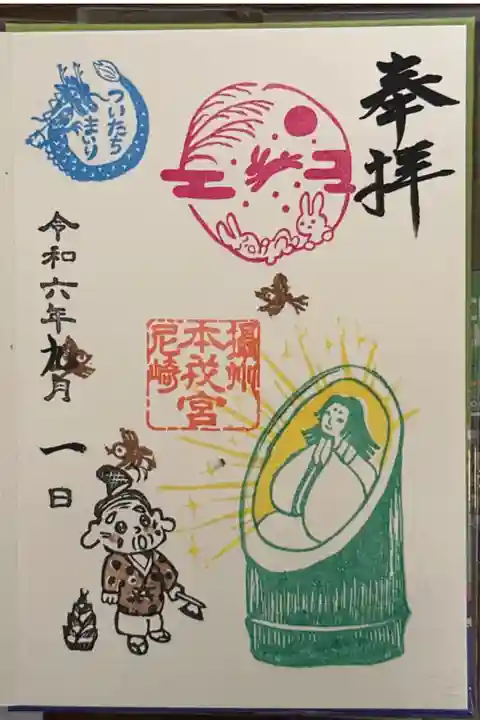 奉拝
ついたち
まいり
摂州
本戎宮
尼崎
令和六年九月一日